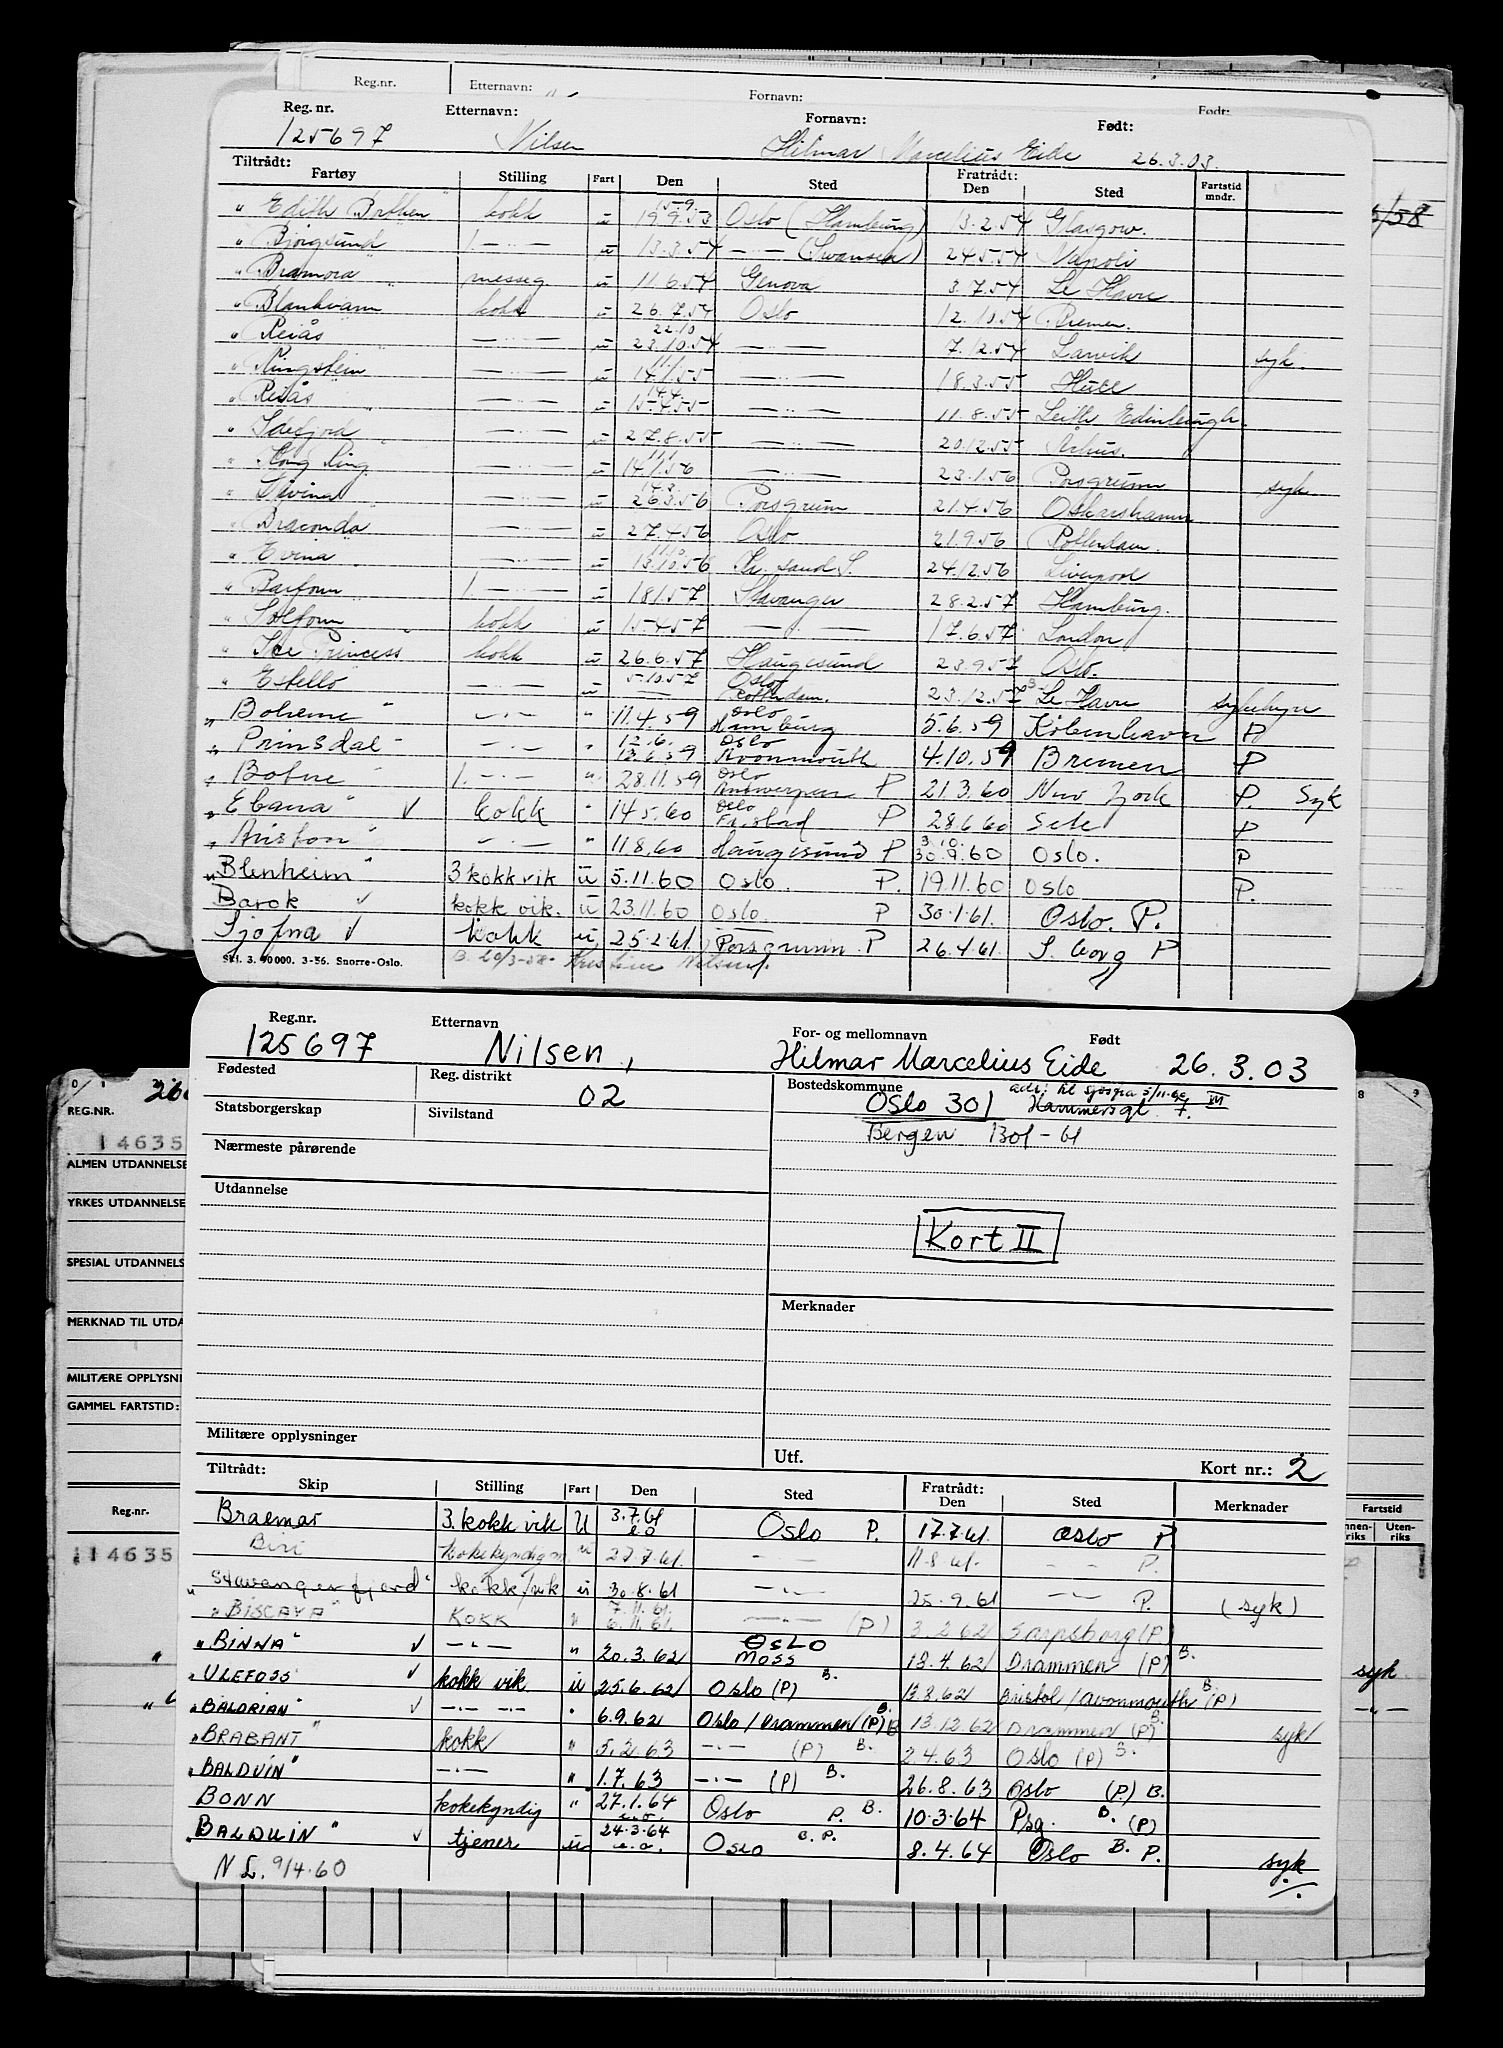 Reg.nr. Etternavn: Fornavn: Født:
Reg. nr. Etternavn: Fornavn: Født:
125697 Nilsen Hilmar Marcelius Eide 26.3.03.
Tiltrådt: Fratrådt:
Fartøy Stilling Fart Den Sted Den Sted Fartstid mndr.
/58
" kokk u 15.9. 19.9.53 Oslo (Hamburg) 13.2.54 Glasgow.
" Bjørgsund " 1. — " — u 13.3.54 — " — (Swansea) 24.5.54 Napoli
" Bramora " messeg. u 11.6.54 Genova 3.7.54 Le Havre
" Blankvann kokk u 26.7.54 Oslo 12.10.54 Bremen.
" Reiås " — " — u 22.10 23.10.54 — " — 7.12.54 Larvik syk.
" Ringstein — " — u 11.1 14.1.55 — " — 18.3.55 Hull
" Reiås " — " — u 14.4. 15.4.55 — " — 11.8.55 Leith Edinburgh.
" Idefjord " — " — u 27.8.55 — " — 20.12.55 Århus.
" Kong Ring — " — u 11.1 14.1.56 — " — 23.1.56 Porsgrunn syk
" — " — u 14.3 26.3.56 Porsgrunn 21.4.56 Oskarshamn
" Braconda " — " — u 27.4.56 Oslo 21.9.56 Rotterdam.
" Evina " — " — u 11.10 13.10.56 Kr. sand S. 24.12.56 Liverpool
" 1. — " — u 18.1.57 Stavanger 28.2.57 Hamburg.
" Solfonn kokk u 15.4.57 — " — 17.6.57 London
" Ice Princess " kokk u 26.6.57 Haugesund 23.9.57 Oslo.
" Estello — " — u 5.10.57 Oslo Rotterdam. 23.12.57 Le Havre
" Boheme " — " — " 11.4.59 Oslo Hamburg 5.6.59 København P
" Prinsdal " — " — " 12.6. 13.6.59 Oslo Avonmouth 4.10.59 Bremen P
" Bofne " 1. — " — " 28.11.59 Oslo Antwerpen P 21.3.60 New York P. Syk
" Ebana " v kokk " 14.5.60 Oslo Fr.stad P 28.6.60 Sete P
" " — " — " 11.8.60 Haugesund P 3.10. 30.9.60 Oslo. P
" Blenheim " 3 kokk vik u 5.11.60 Oslo. P. 19.11.60 Oslo P.
Barok v kokk vik. u 23.11.60 Oslo. P 30.1.61. Oslo. P.
Sjofna v kokk u. 25.2.61. Porsgrunn. P 26.4.61. S. borg P
Skl. 3. 40 000. 3-56. Snorre-Oslo. B. 20/3-58- Kristine Nilsen.
Reg.nr. Etternavn For- og mellomnavn Født
125697 Nilsen, Hilmar Marcelius Eide 26.3.03
Fødested Reg. distrikt Bostedskommune
02 Oslo 301 adr: til Sjøfna 5/11-60 Hammersgt. 7. III
Statsborgerskap Sivilstand
Bergen 1301-61
Nærmeste pårørende
Utdannelse
Kort II
Merknader
Militære opplysninger Utf. Kort nr.: 2
Tiltrådt: Fratrådt:
Skip Stilling Fart Den Sted Den Sted Merknader
Braemar 3. kokk vik U 3.7.61 e.o Oslo P. 17.7.61. Oslo P
Biri kokekyndig m. u 27.7.61. — " — 11.8.61. — " — P.
" Stavangerfjord " kokk/vik u 30.8.61 — " — 25.9.61 — " — P. (syk)
" BISCAYA " KOKK " 7.11.61. 6.11.61. — " — (P) 3.2.62 Sarpsborg (P)
" BINNA " v — " — " 20.3.62 OSLO MOSS 13.4.62 Drammen (P) B.
" ULEFOSS v kokk vik. u 25.6.62 Oslo (P) B. 13.8.62 Bristol/Avonmouth B. (P)
" BALDRIAN " v — " — — " — " 6.9.62 Oslo/Drammen (P) B. 13.12.62 Drammen (P) B. syk
" BRABANT " kokk " 5.2.63 — " — (P) B. 2.4.63 Oslo (P) B.
" BALDUIN " — " — " 1.7.63 — " — (P) B. 26.8.63 Oslo (P) B.
BONN kokekyndig " 27.1.64 e.o. Oslo P. B. 10.3.64 Psg. B. (P)
" BALDUIN " v tjener u 24.3.64 e.o. Oslo B. P. 8.4.64 Oslo B. P. syk
N L. 9/4.60
REG.NR. 26
14635
ALMEN UTDANNELSE
YRKES UTDANNELSE
SPESIAL UTDANNELS
MERKNAD TIL UTDA
MILITÆRE OPPLYSNI
GAMMEL FARTSTID:
Reg.-nr.
114635
8 9
Fartstid
nnen-riks Uten-riks
syk
— " —